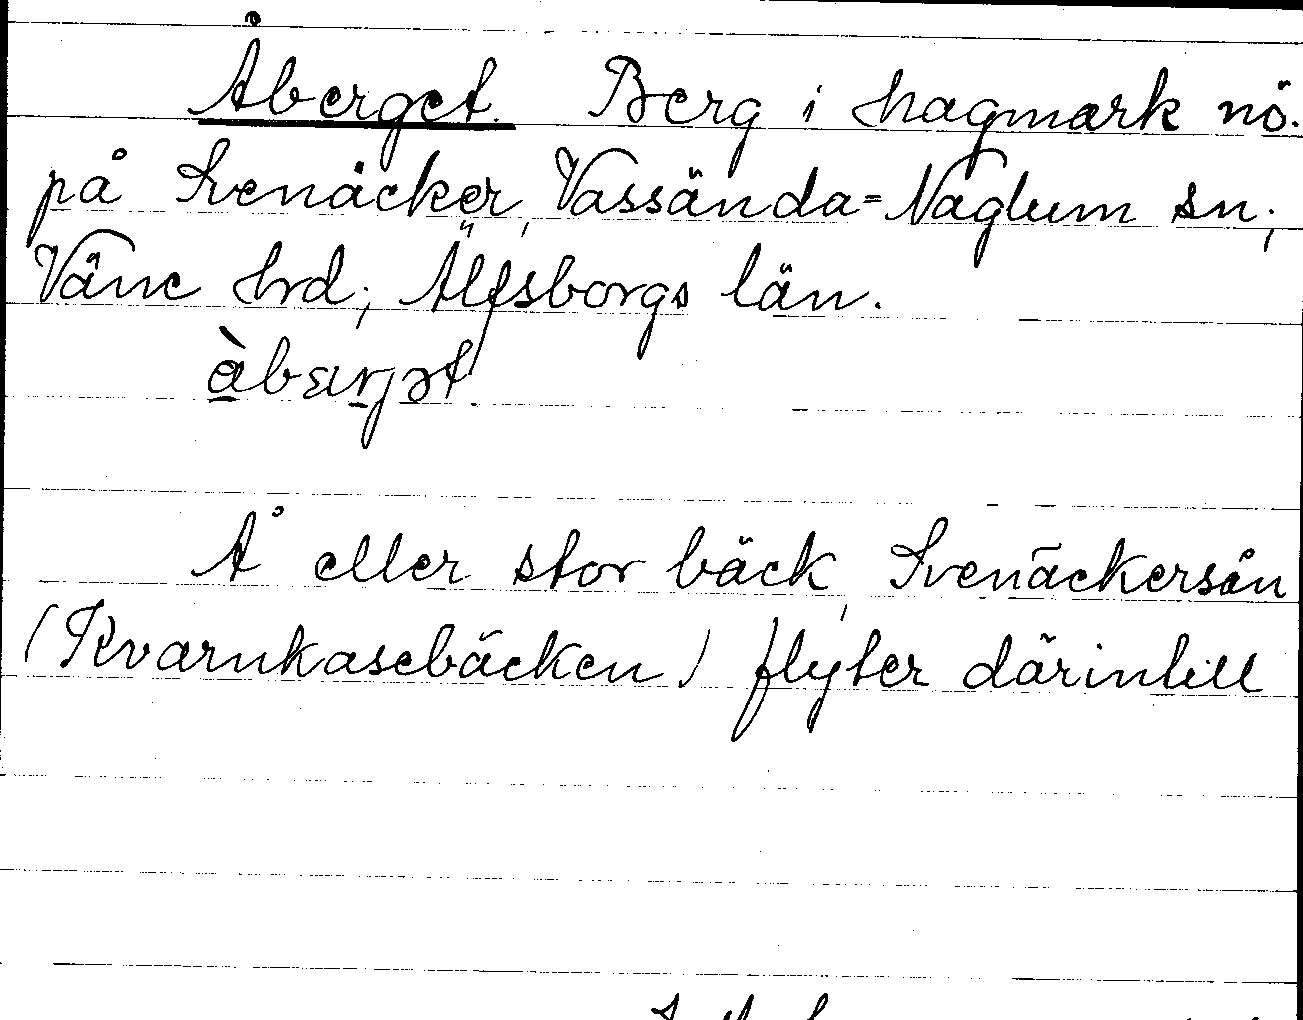 Åberget. Berg i hagmark nö.
på Svenäcker, Vassända=Naglum sn;
Väne hrd; Älfsborgs län.
Å eller stor bäck, Svenäckersån
(Kvarnkasebäcken) flyter därintill